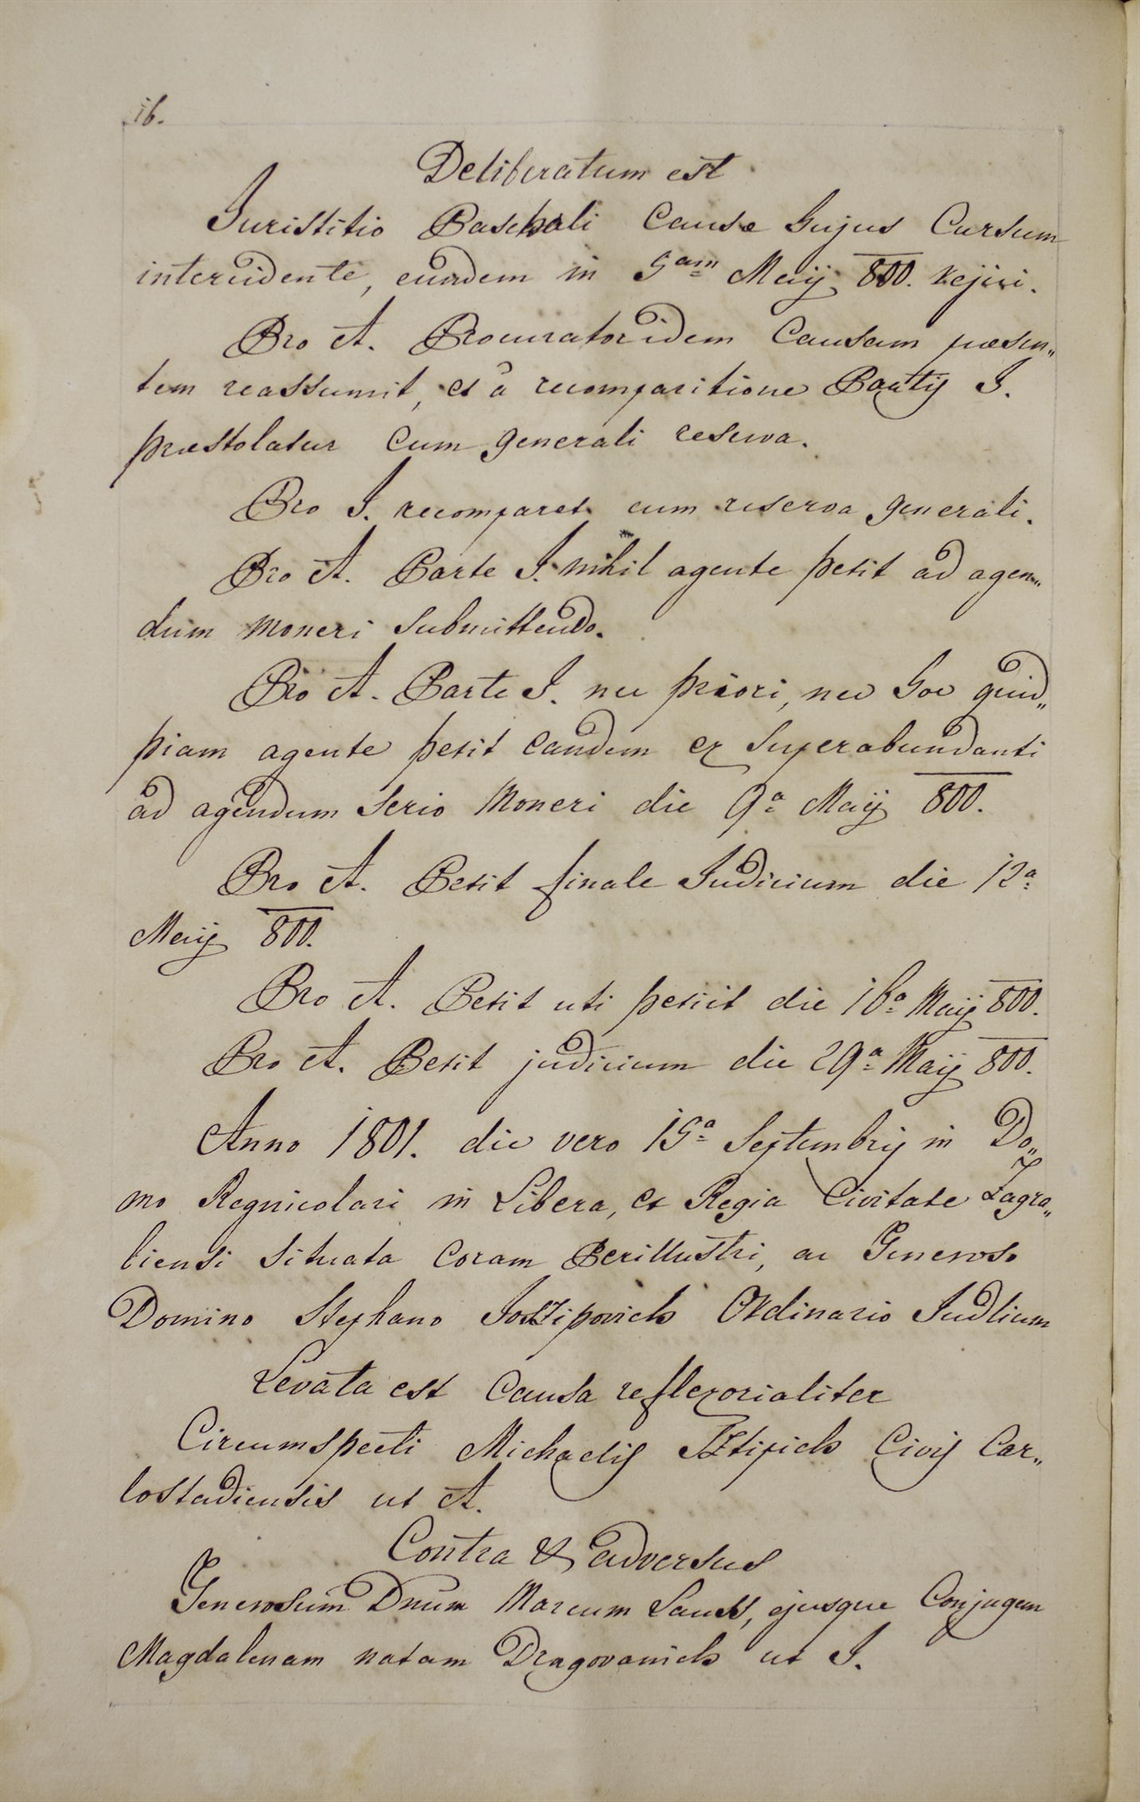 16.
Deliberatum est
Juristitio Paschali Causæ hujus Cursum
intercidente, eandem in 5am Maij 800. rejici.
Pro A. Procurator idem Causam præsen„
tem reassumit, et a recomparitione Partis I.
præstolatur Cum generali reserva.
Pro I. recomparet cum reserva generali.
Pro A. Parte I. nihil agente petit ad agen„
dum moneri submittendo.
Pro A. Parte I. nec priori, nec hoc quid„
piam agente petit eandem ex Superabundanti
ad agendum serio Moneri die 9a Maij 800.
Pro A. Petit finale Judicium die 12a
Maij 800.
Pro A. Petit uti petiit die 16a Maij 800.
Pro A. Petit judicium die 29a Maij 800.
Anno 1801. die vero 15a Septembris in Do„
mo Regnicolari in Libera, et Regia Civitate Zagra„
biensi Situata Coram Perillustri, ac Generoso
Domino Stephano Joszipovich Ordinario Judlium
Levata est Causa reflexorialiter
Circumspecti Michaelis Sztipich Civis Car„
lostadiensis ut A.
Contra & adversus
Generosum Dnum Marcum ejusque Conjugem
Magdalenam natam Dragovanich ut I.